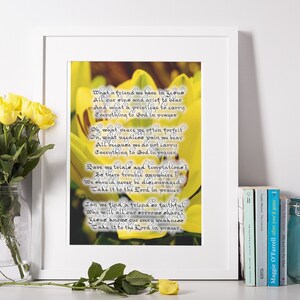 What a friend we have in Jesus
All our sins and grief to bear
And what a privilege to carry
Everything to God in prayer
Oh, what peace we often forfeit
Oh, what needless pain we bear
All because we do not carry
Everything to God in prayer
Have we trials and temptations?
Is there trouble anywhere?
We should never be discouraged
Take it to the Lord in prayer
Can we find a friend so faithful
Who will all our sorrows share?
Jesus knows our every weakness
Take it to the Lord in prayer
Maggie O'Farrell